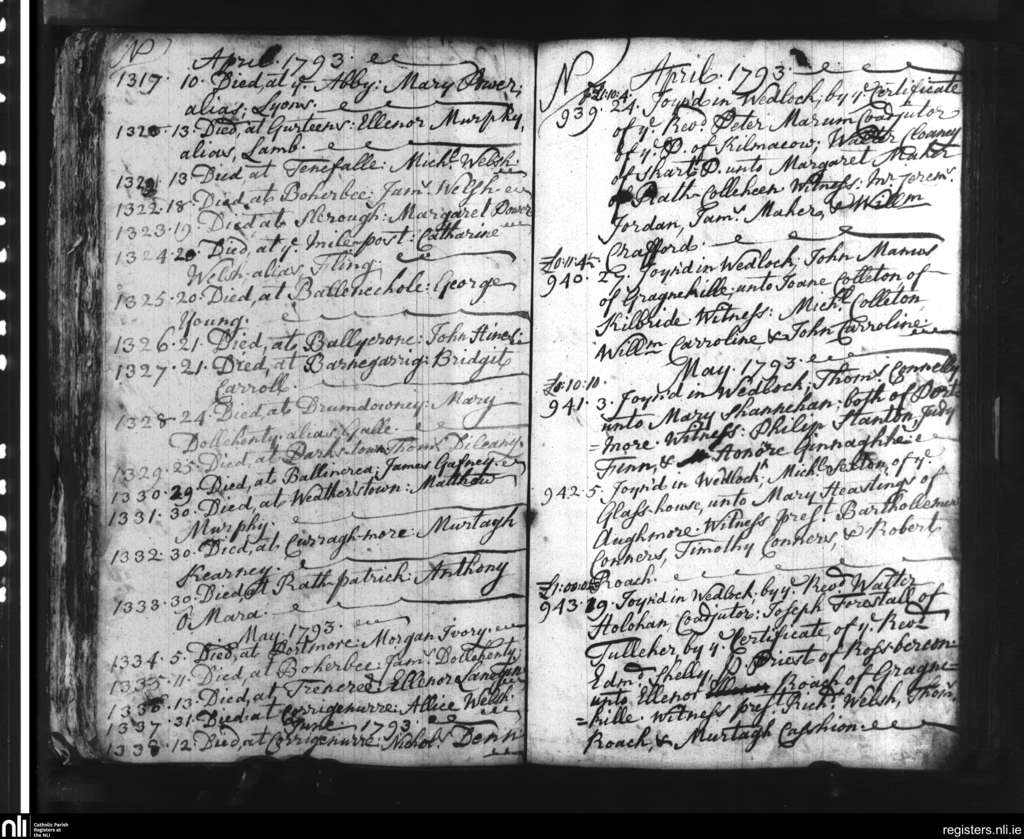 No
April. 1793.
1317. 10. Died, at ye Abby: Mary Power,
alias; Lyons.
1320. 13. Died, at Gurteens: Ellenor Murphy,
alias, Lamb.
1321. 13 Died at Tenefalle: Michl. Welsh.
1322. 18. Died at Boherbee: Jams. Welsh.
1323. 19. Died at Slerough: Margaret Power
1324. 20. Died, at ye Mile-post: Catharine
Welsh alias Fling.
1325. 20. Died, at Ballenechole: George
Young.
1326. 21. Died, at Ballycrone: John Hines:
1327. 21. Died, at Barnegarrig: Bridgit
Carroll.
1328. 24. Died, at Drumdowney: Mary
Dollehenty alias Galle.
1329. 25. Died, at Darkstown: Thoms. Dileany.
1330. 29. Died, at Ballincrea: James Gafney.
1331. 30. Died, at Weatherstown: Matthow
Murphy.
1332. 30. Died, at Curraghmore: Murtagh
Kearney.
1333. 30. Died At Rath-patrick: Anthony
O Mara:
May. 1793.
1334. 5. Died, at Portmore: Morgan Ivory.
1335. 11. Died, at Boherbee: Jams. Dollehenty
1336. 13. Died, at Trencree: Ellenor
1337. 31. Died at Corrigenurre: Allice Welsh.
June. 1793.
1338. 12. Died, at Corrigenurre: Nichols. Denn
No
April. 1793.
939. 24. Joyn'd in Wedlock; by ye Certificate
of ye Revd. Peter Marum Coadjutor
of ye P. of Kilmacow; Walter Cloaney
of Shart P. unto Margaret Maher
of Rath-Colleheen Witness: Mr. Jerem.
Jordan, Jams. Maher, & Willm
Crafford.
£0:11:4½
940. 27. Joyn'd in Wedlock: John Manus
of Gragnekille, unto Joane Colleton of
Kilbride Witness: Michl. Colleton
Willm Carroline & John Carroline.
May. 1793.
£0:10:10.
941. 3. Joyn'd in Wedlock; Thoms. Connelly
unto Mary Shannehan; both of Port
=more. Witness: Philip Stanton, Judy
Finn, & Honore Ginnaghte
942. 5. Joyn'd in Wedlock, Michl. Sexton, of ye
Glass-house, unto Mary Heastings of
Aughmore. Witness prest. Bartholleme
Conners, Timothy Conners, & Robert
Roach.
943. 19. Joyn'd in Wedlock, by ye Revd. Walter
Holohan Coadjutor: Joseph Forestall of
Tulleher by ye Certificate of ye Revd
Edmd. Shelly P. Priest of Rossbercon
unto Ellenor Roach of Gragne
=kille. Witness prest Richd. Welsh, Thoms.
Roach, & Murtagh Cashion.
nli
Catholic Parish
Registers at
the NLI
registers.nli.ie